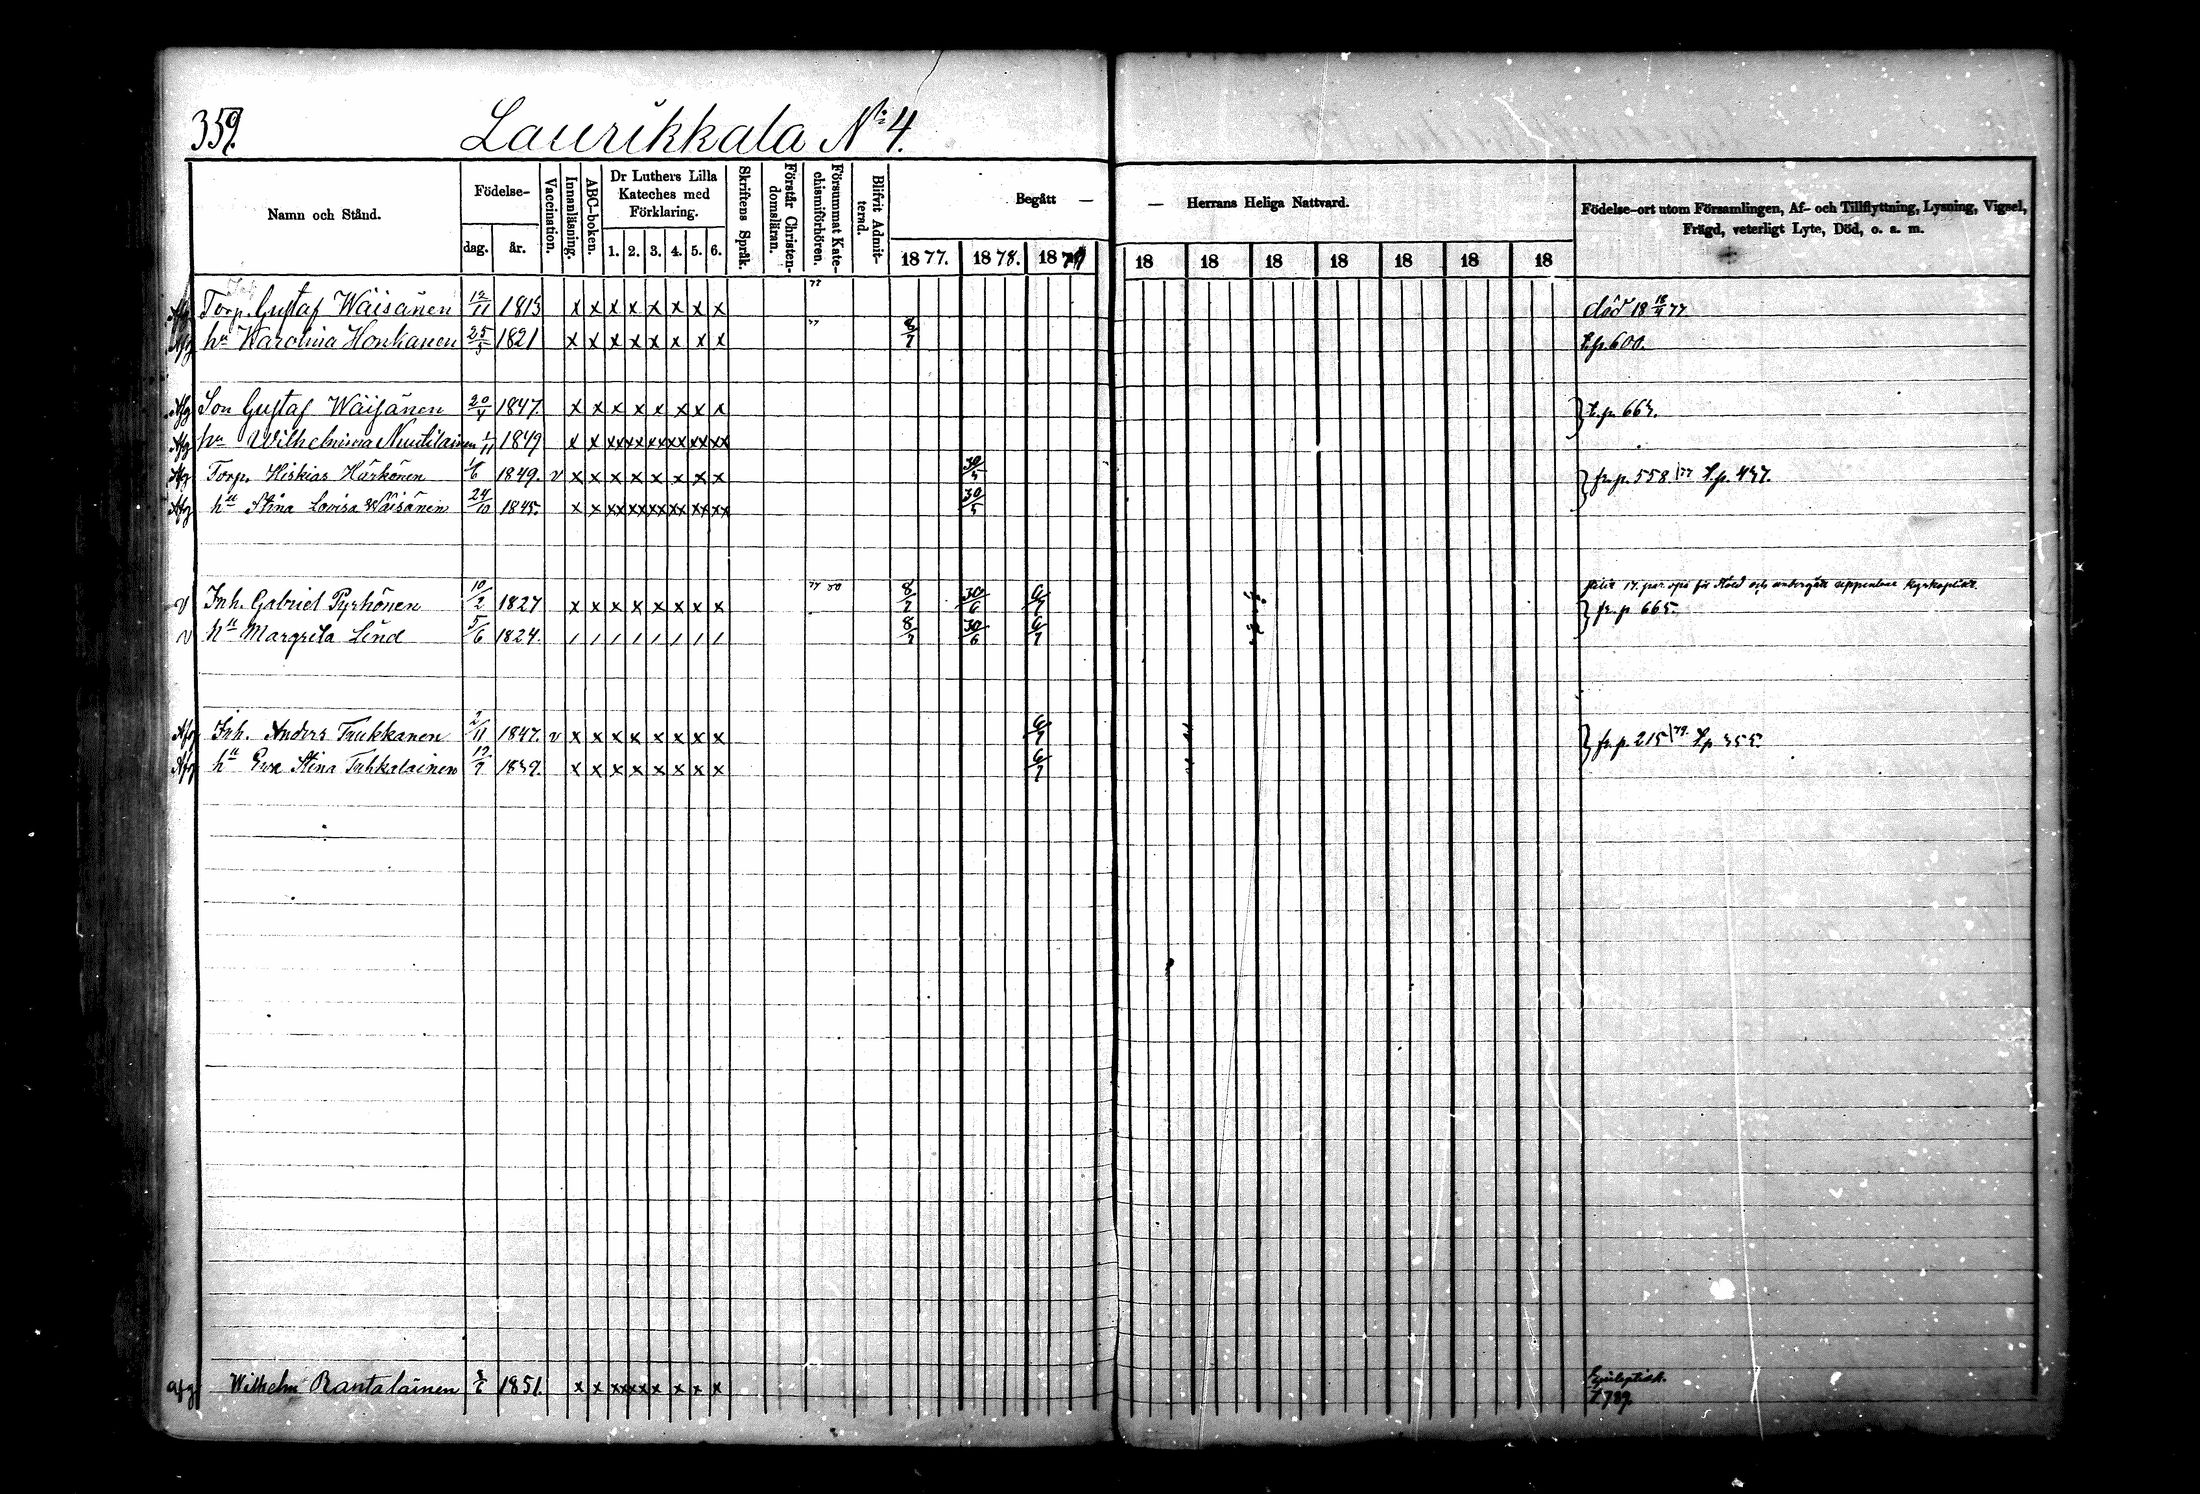 359.
Laurikkala No 4.
Namn och Stånd.
Födelse-
dag. år.
Vaccination.
Innanläsning.
ABC-boken.
Dr Luthers Lilla Kateches med Förklaring.
1. 2. 3. 4. 5. 6.
Skriftens Språk.
Förstår Christendomsläran.
Försummat Katechismiförhören.
Blifvit Admitterad.
Begått — — Herrans Heliga Nattvard.
1877. 1878. 1879 18 18 18 18 18 18 18
Födelse-ort utom Församlingen, Af- och Tillflyttning, Lysning, Vigsel,
Frägd, veterligt Lyte, Död, o. s. m.
Afg Torp. Gustaf Wäisänen 12/11 1813 x x x x x x x x 77 död 18 18/4 77
Afg hu Karolina Honkanen 25/3 1821 x x x x x x x x 77 8/7 t.p. 600.
Afg Son Gustaf Wäisänen 20/4 1847. x x x x x x x x } t.p. 665.
Afg hu Wilhelmina Nuutilainen 1/11 1849 x x xx xx xx xx xx xx
Afg Torp. Hiskias Härkönen 1/6 1849. v x x x x x x x x 30/5 } fr. p. 558.|77 t.p. 437.
Afg hu Stina Lovisa Wäisänen 24/10 1845. x x xx xx xx xx xx xx 30/5
v Inh. Gabriel Pyrhönen 10/2 1827 x x x x x x x x 77 80 8/7 30/6 6/7 } fr. p 665.
v hu Margreta Lind 5/6 1824. / / / / / / / / 8/7 30/6 6/7
Afg Inh. Anders Tuukkanen 2/11 1847. v x x x x x x x x 6/7 } fr. p. 215|79. t.p 355.
Afg hu Ewa Stina Tuhkalainen 19/7 1839. x x x x x x x x 6/7
afg Wilhelm Rantalainen 1851. x x xx xx x x x x Epileptisk.
t 789.